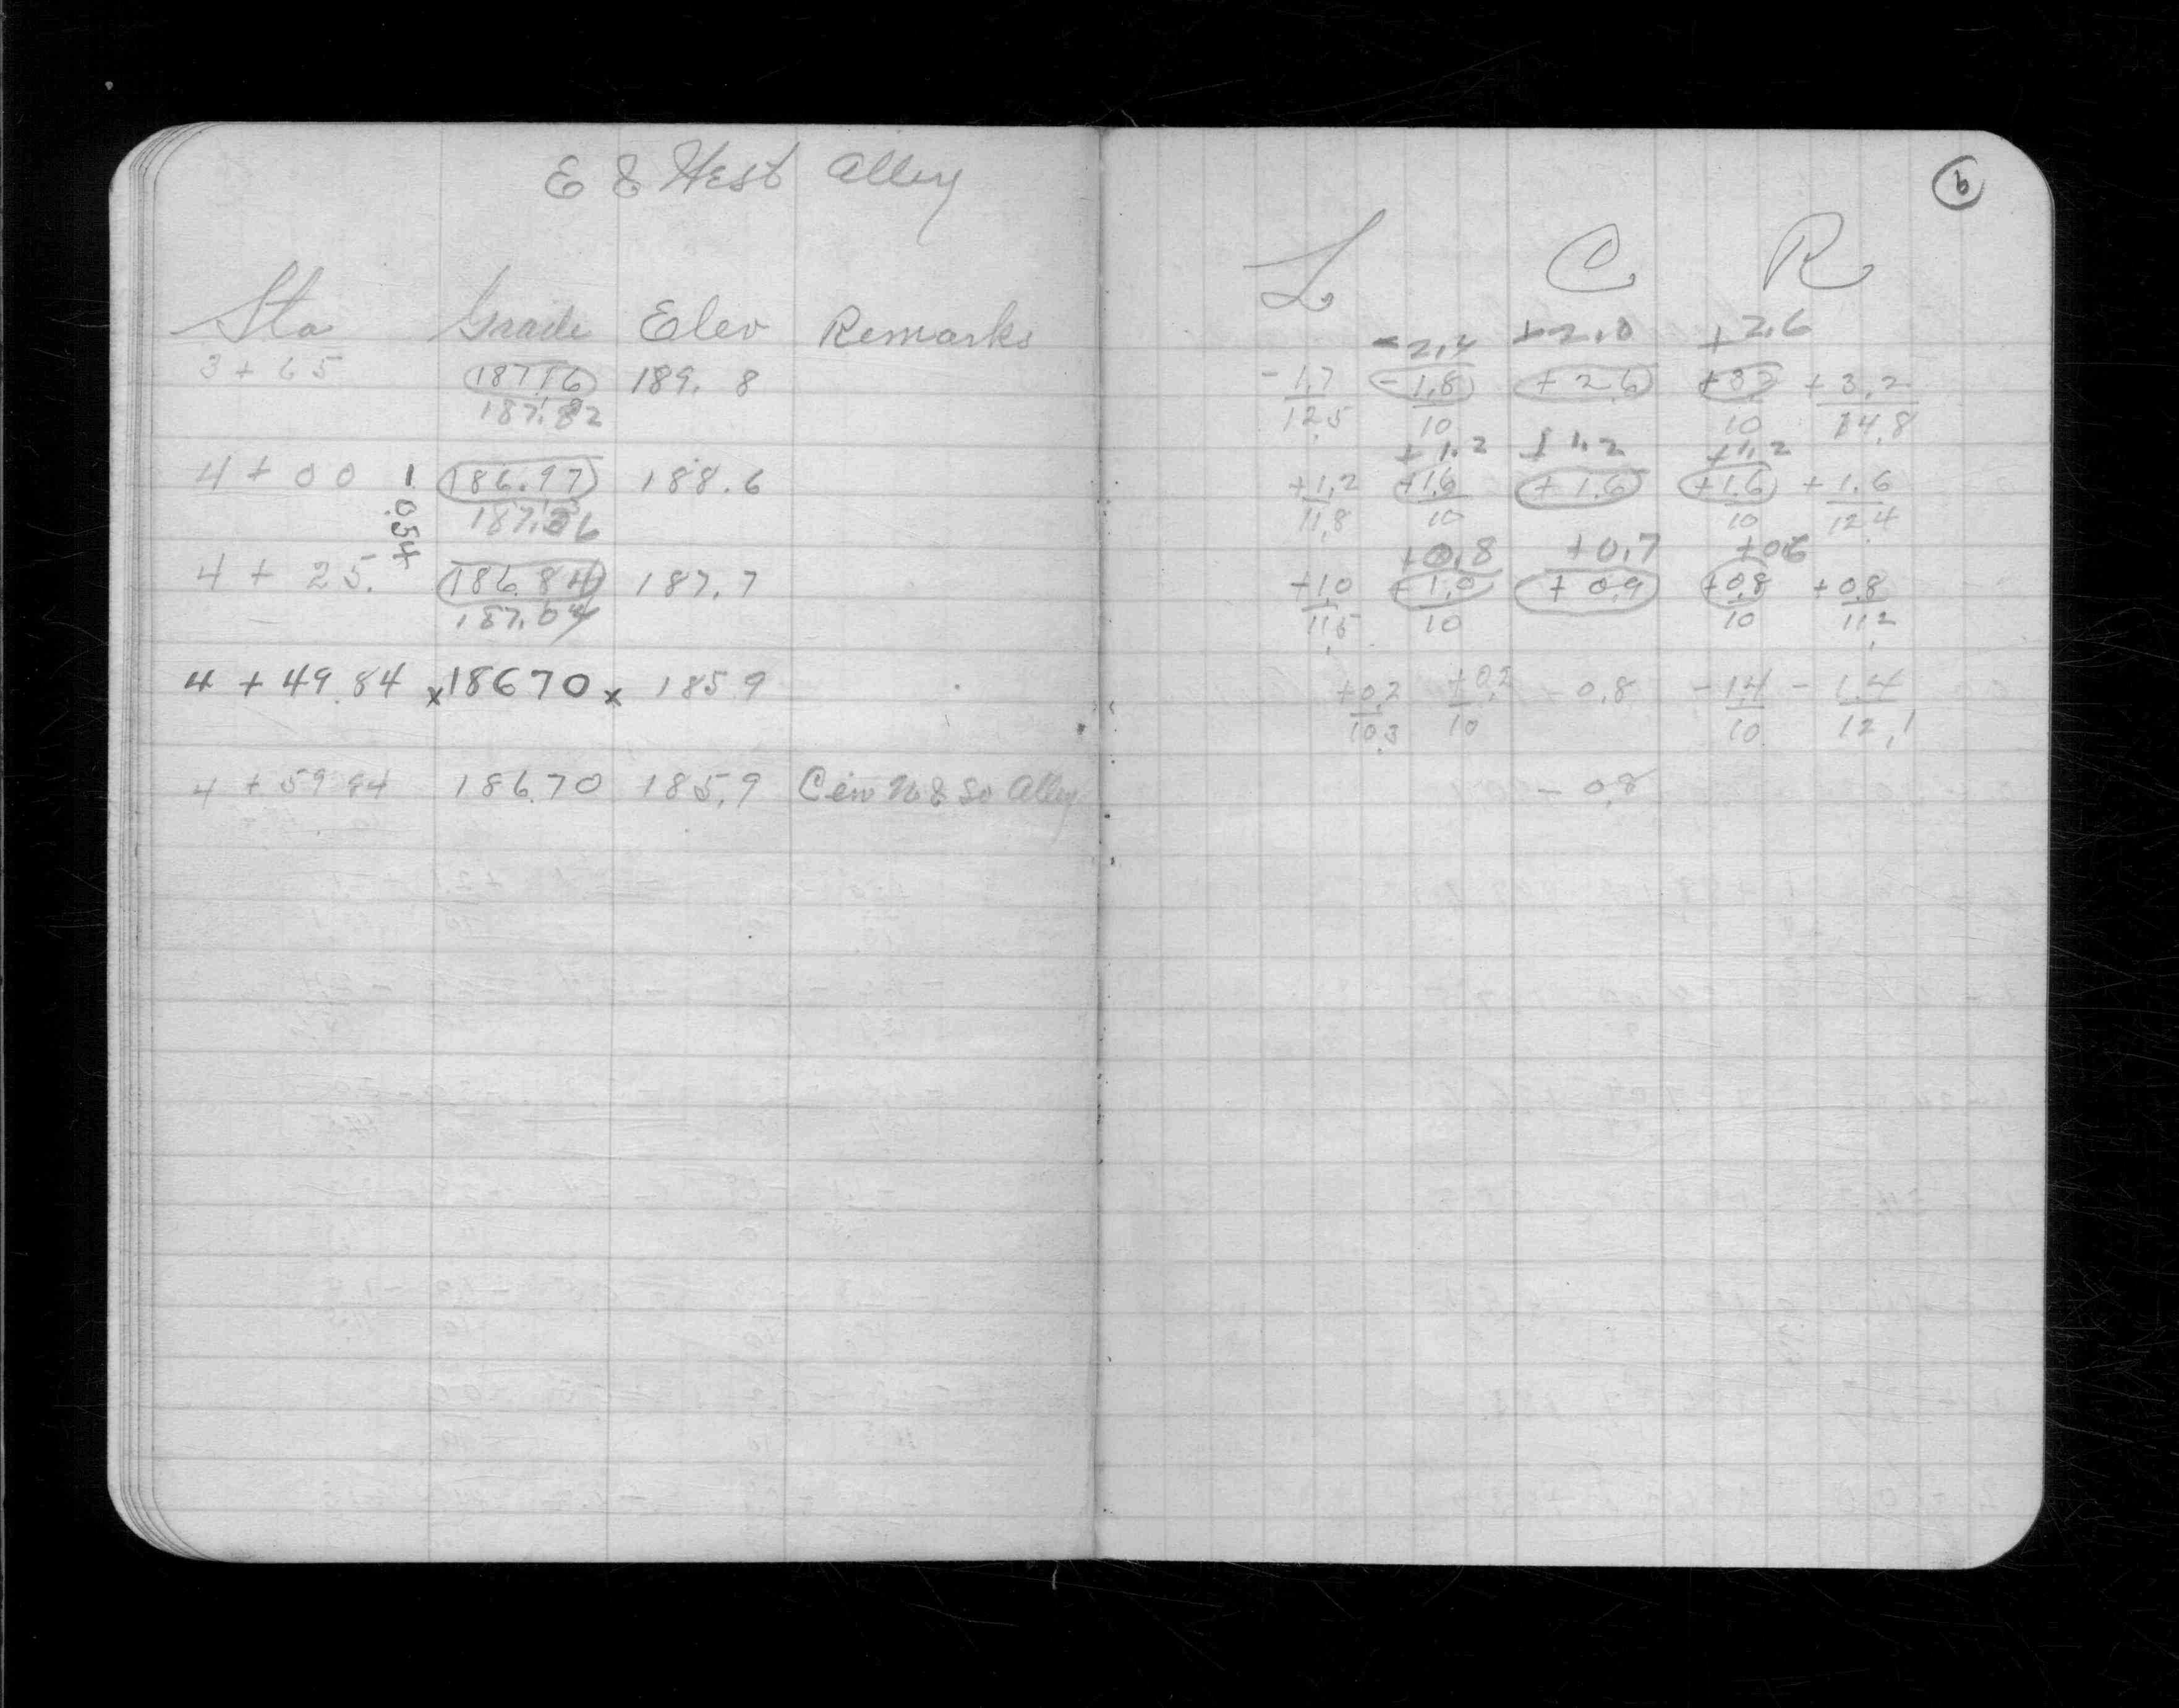 E & West Alley
Sta Grade Elev Remarks
3 + 65 187.16 189.8
187.82
4 + 00 186.97 188.6
187.36
- 0.54
4 + 25. 186.84 187.7
187.04
4 + 49.84 x 186 70 x 185 9
4 + 59 84 186.70 185.9 Cen N & So Alley
6
L C R
-2.4 +2.0 +2.6
-1.7 -1.8 +2.6 +3.2 +3.2
12.5 10 10 14.8
+1.2 +1.2 +1.2
+1.2 +1.6 +1.6 +1.6 +1.6
11.8 10 10 12.4
+0.8 +0.7 +0.6
+1.0 +1.0 +0.9 +0.8 +0.8
11.5 10 10 11.2
+0.2 +0.2 -0.8 -1.4 -1.4
10.3 10 10 12.1
-0.8